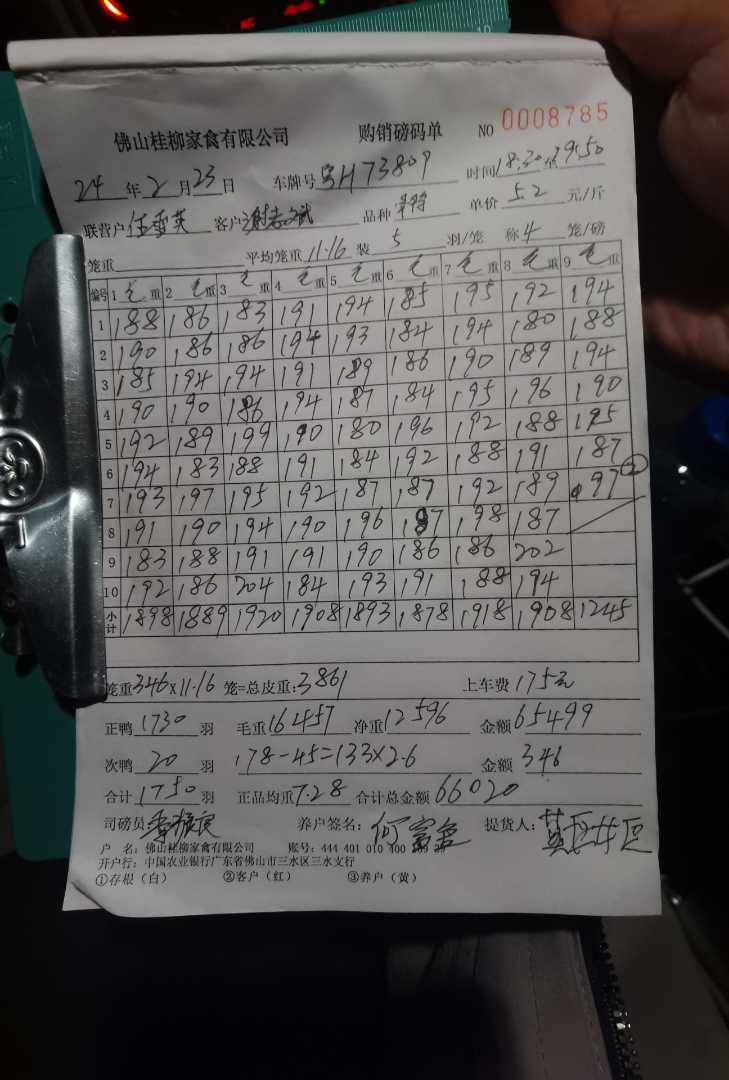 佛山桂柳家禽有限公司 购销磅码单 NO 0008785
24 年 2 月 23 日 车牌号 H73809 时间 18:30 至 19:50
联营户 伍雪英 客户 谢志斌 品种 单价 5.2 元/斤
笼重 平均笼重 11.16 装 5 羽/笼 称 4 笼/磅
编号 1 毛重 2 毛重 3 毛重 4 毛重 5 毛重 6 毛重 7 毛重 8 毛重 9 毛重
1 188 186 183 191 194 185 195 192 194
2 190 186 186 194 193 184 194 180 188
3 185 194 194 191 189 186 190 189 194
4 190 190 186 194 187 184 195 196 190
5 192 189 199 190 180 196 192 188 195
6 194 183 188 191 184 192 188 191 187
7 193 197 195 192 187 187 192 189 97 ②
8 191 190 194 190 196 187 198 187
9 183 188 191 191 190 186 186 202
10 192 186 204 184 193 191 188 194
小计 1898 1889 1920 1908 1893 1878 1918 1908 1245
笼重 346×11.16 笼=总皮重: 3861 上车费 175元
正鸭 1730 羽 毛重 16457 净重 12596 金额 65499
次鸭 20 羽 178-45=133×2.6 金额 346
合计 1750 羽 正品均重 7.28 合计总金额 66020
司磅员 养户签名: 何富 提货人:
户 名: 佛山桂柳家禽有限公司 账号: 444 401 010 400
开户行: 中国农业银行广东省佛山市三水区三水支行
①存根（白） ②客户（红） ③养户（黄）